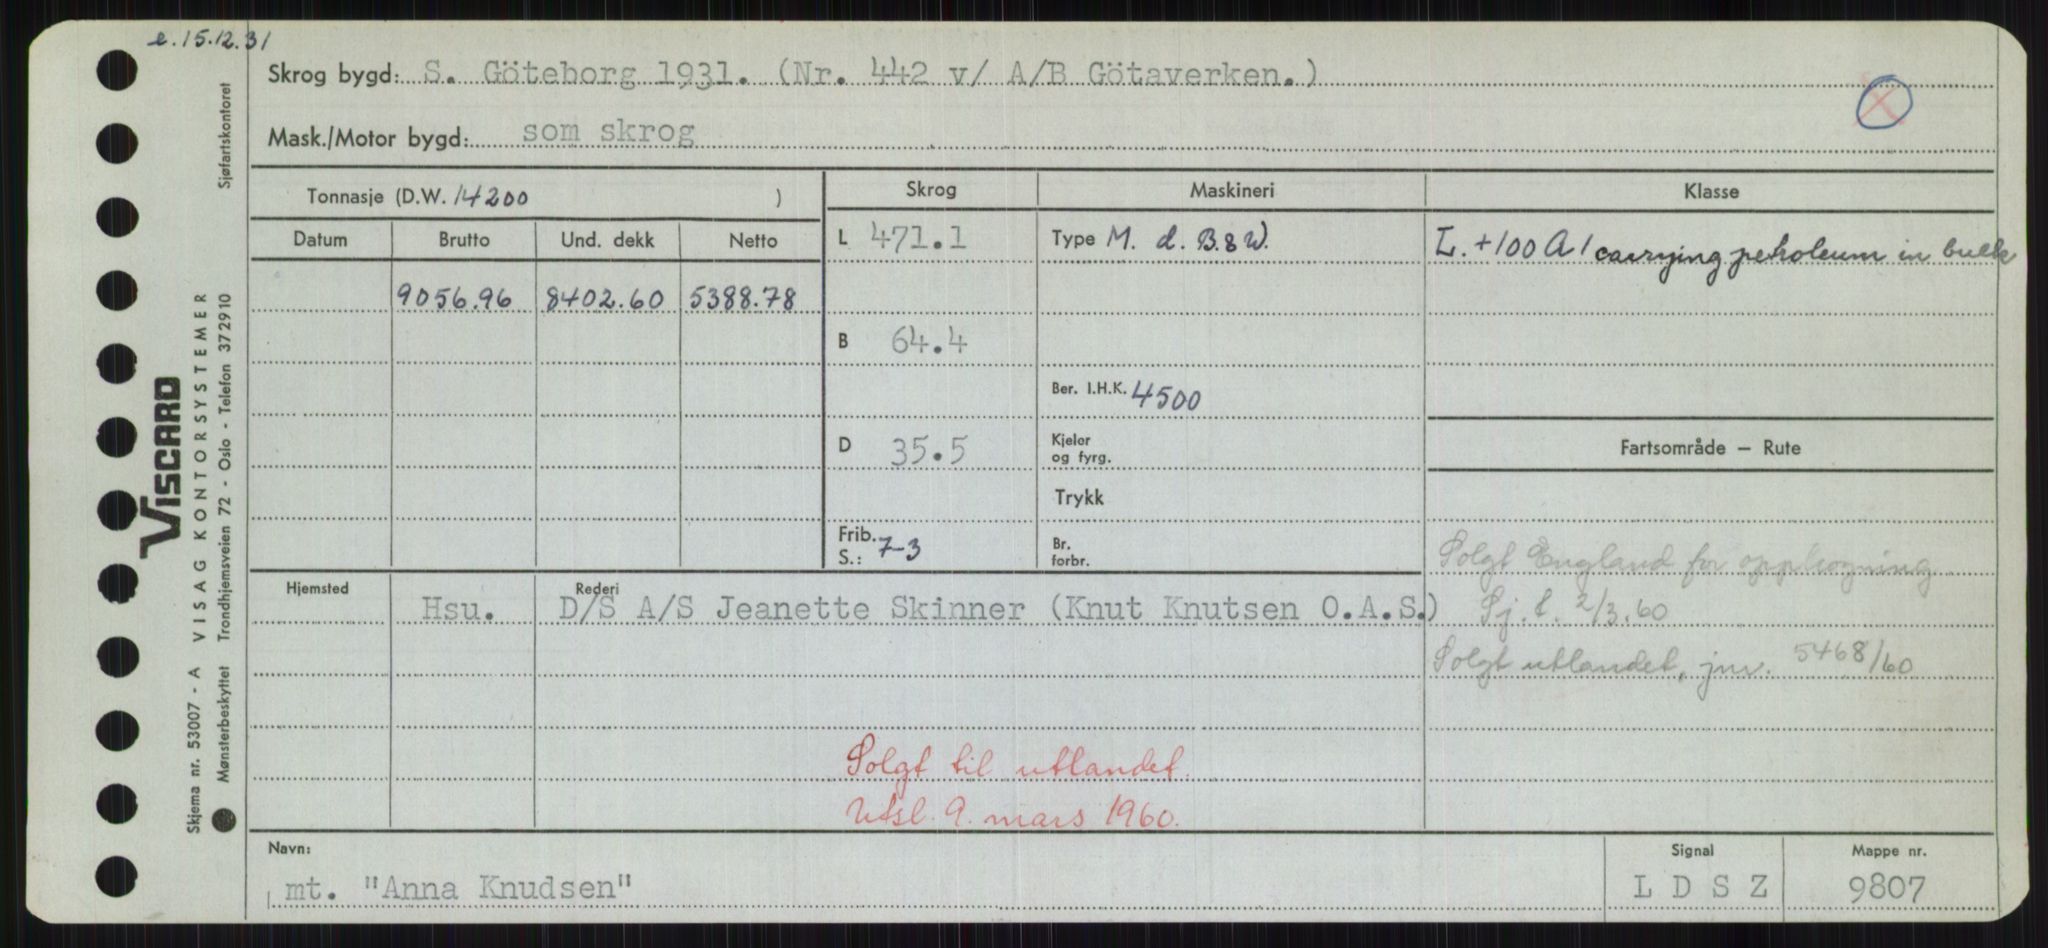 e. 15.12.31
Skrog bygd: S. Göteborg 1931. (Nr. 442 v/ A/B Götaverken.)
Mask./Motor bygd: som skrog
Tonnasje (D.W. 14200 )
Skrog
Maskineri
Klasse
Datum Brutto Und. dekk Netto
L 471.1
Type M. d. B.&W.
L. +100 A 1 carrying petroleum in bulk
9056.96 8402.60 5388.78
B 64.4
Ber. I.H.K. 4500
D 35.5
Kjeler
og fyrg.
Fartsområde — Rute
Trykk
Frib.
S.: 7-3
Br.
forbr.
Solgt England for opphogning
Hjemsted
Rederi
Hsu. D/S A/S Jeanette Skinner (Knut Knutsen O.A.S.)
Sj. t. 2/3.60
Solgt utlandet, jnr. 5468/60
Solgt til utlandet.
Utsl. 9. mars 1960.
Navn:
Signal
Mappe nr.
mt. "Anna Knudsen"
L D S Z
9807
Skjema nr. 53007 - A VISAG KONTORSYSTEMER
VISCARD
Mønsterbeskyttet Trondhjemsveien 72 - Oslo - Telefon 372910 Sjøfartskontoret